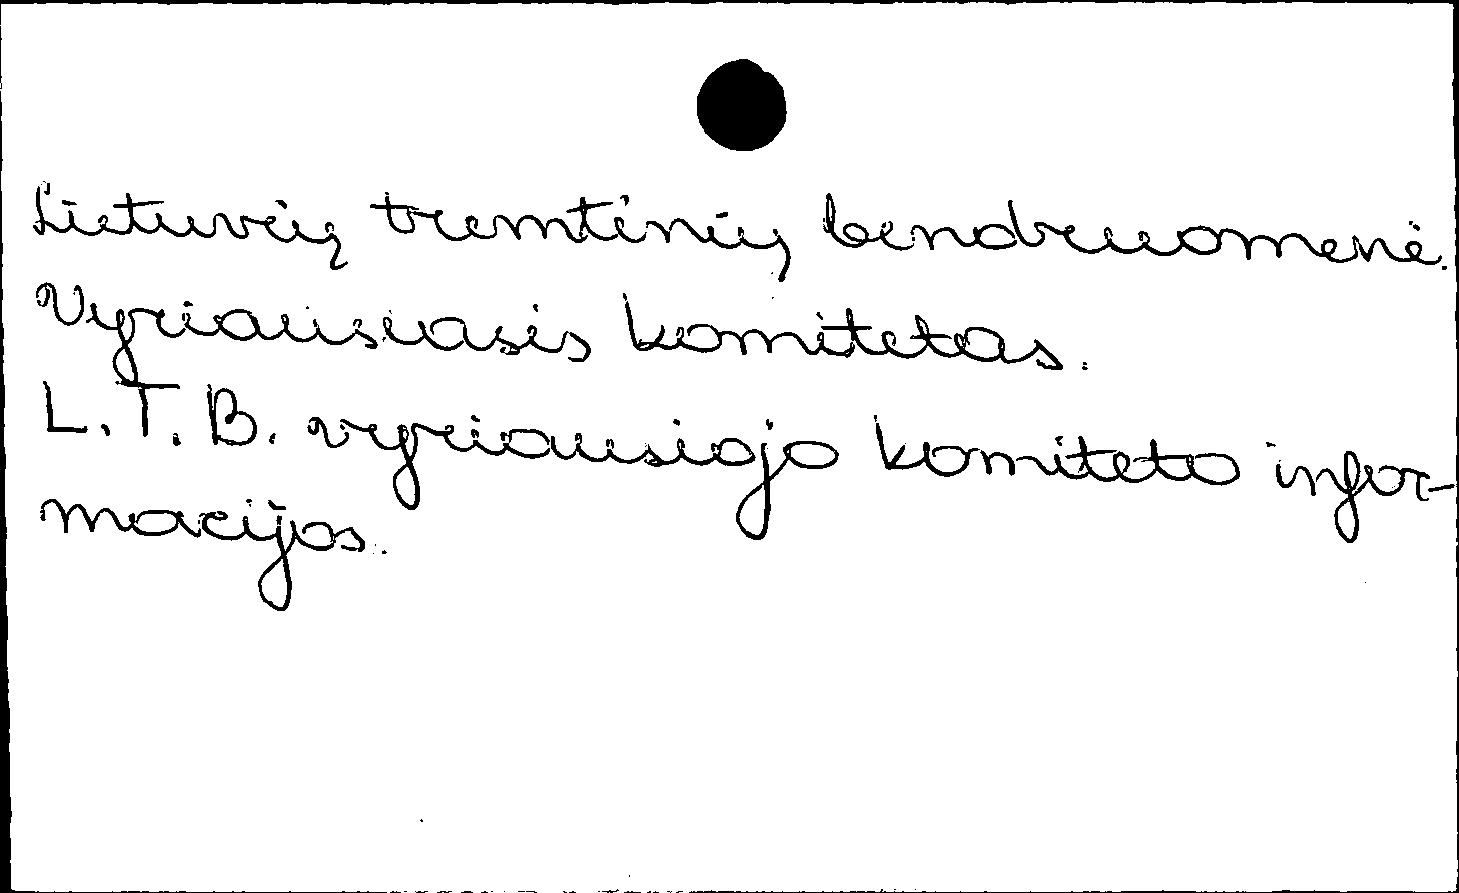 Lietuvių tremtinių bendruomenė.
Vyriausiasis komitetas.
L.T.B. vyriausiojo komiteto infor-
macijos.